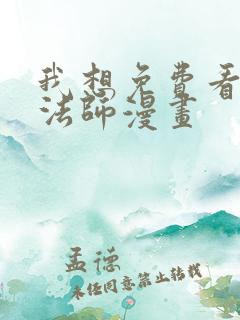 我想免费看
法师漫画
孟德
未经同意禁止转载